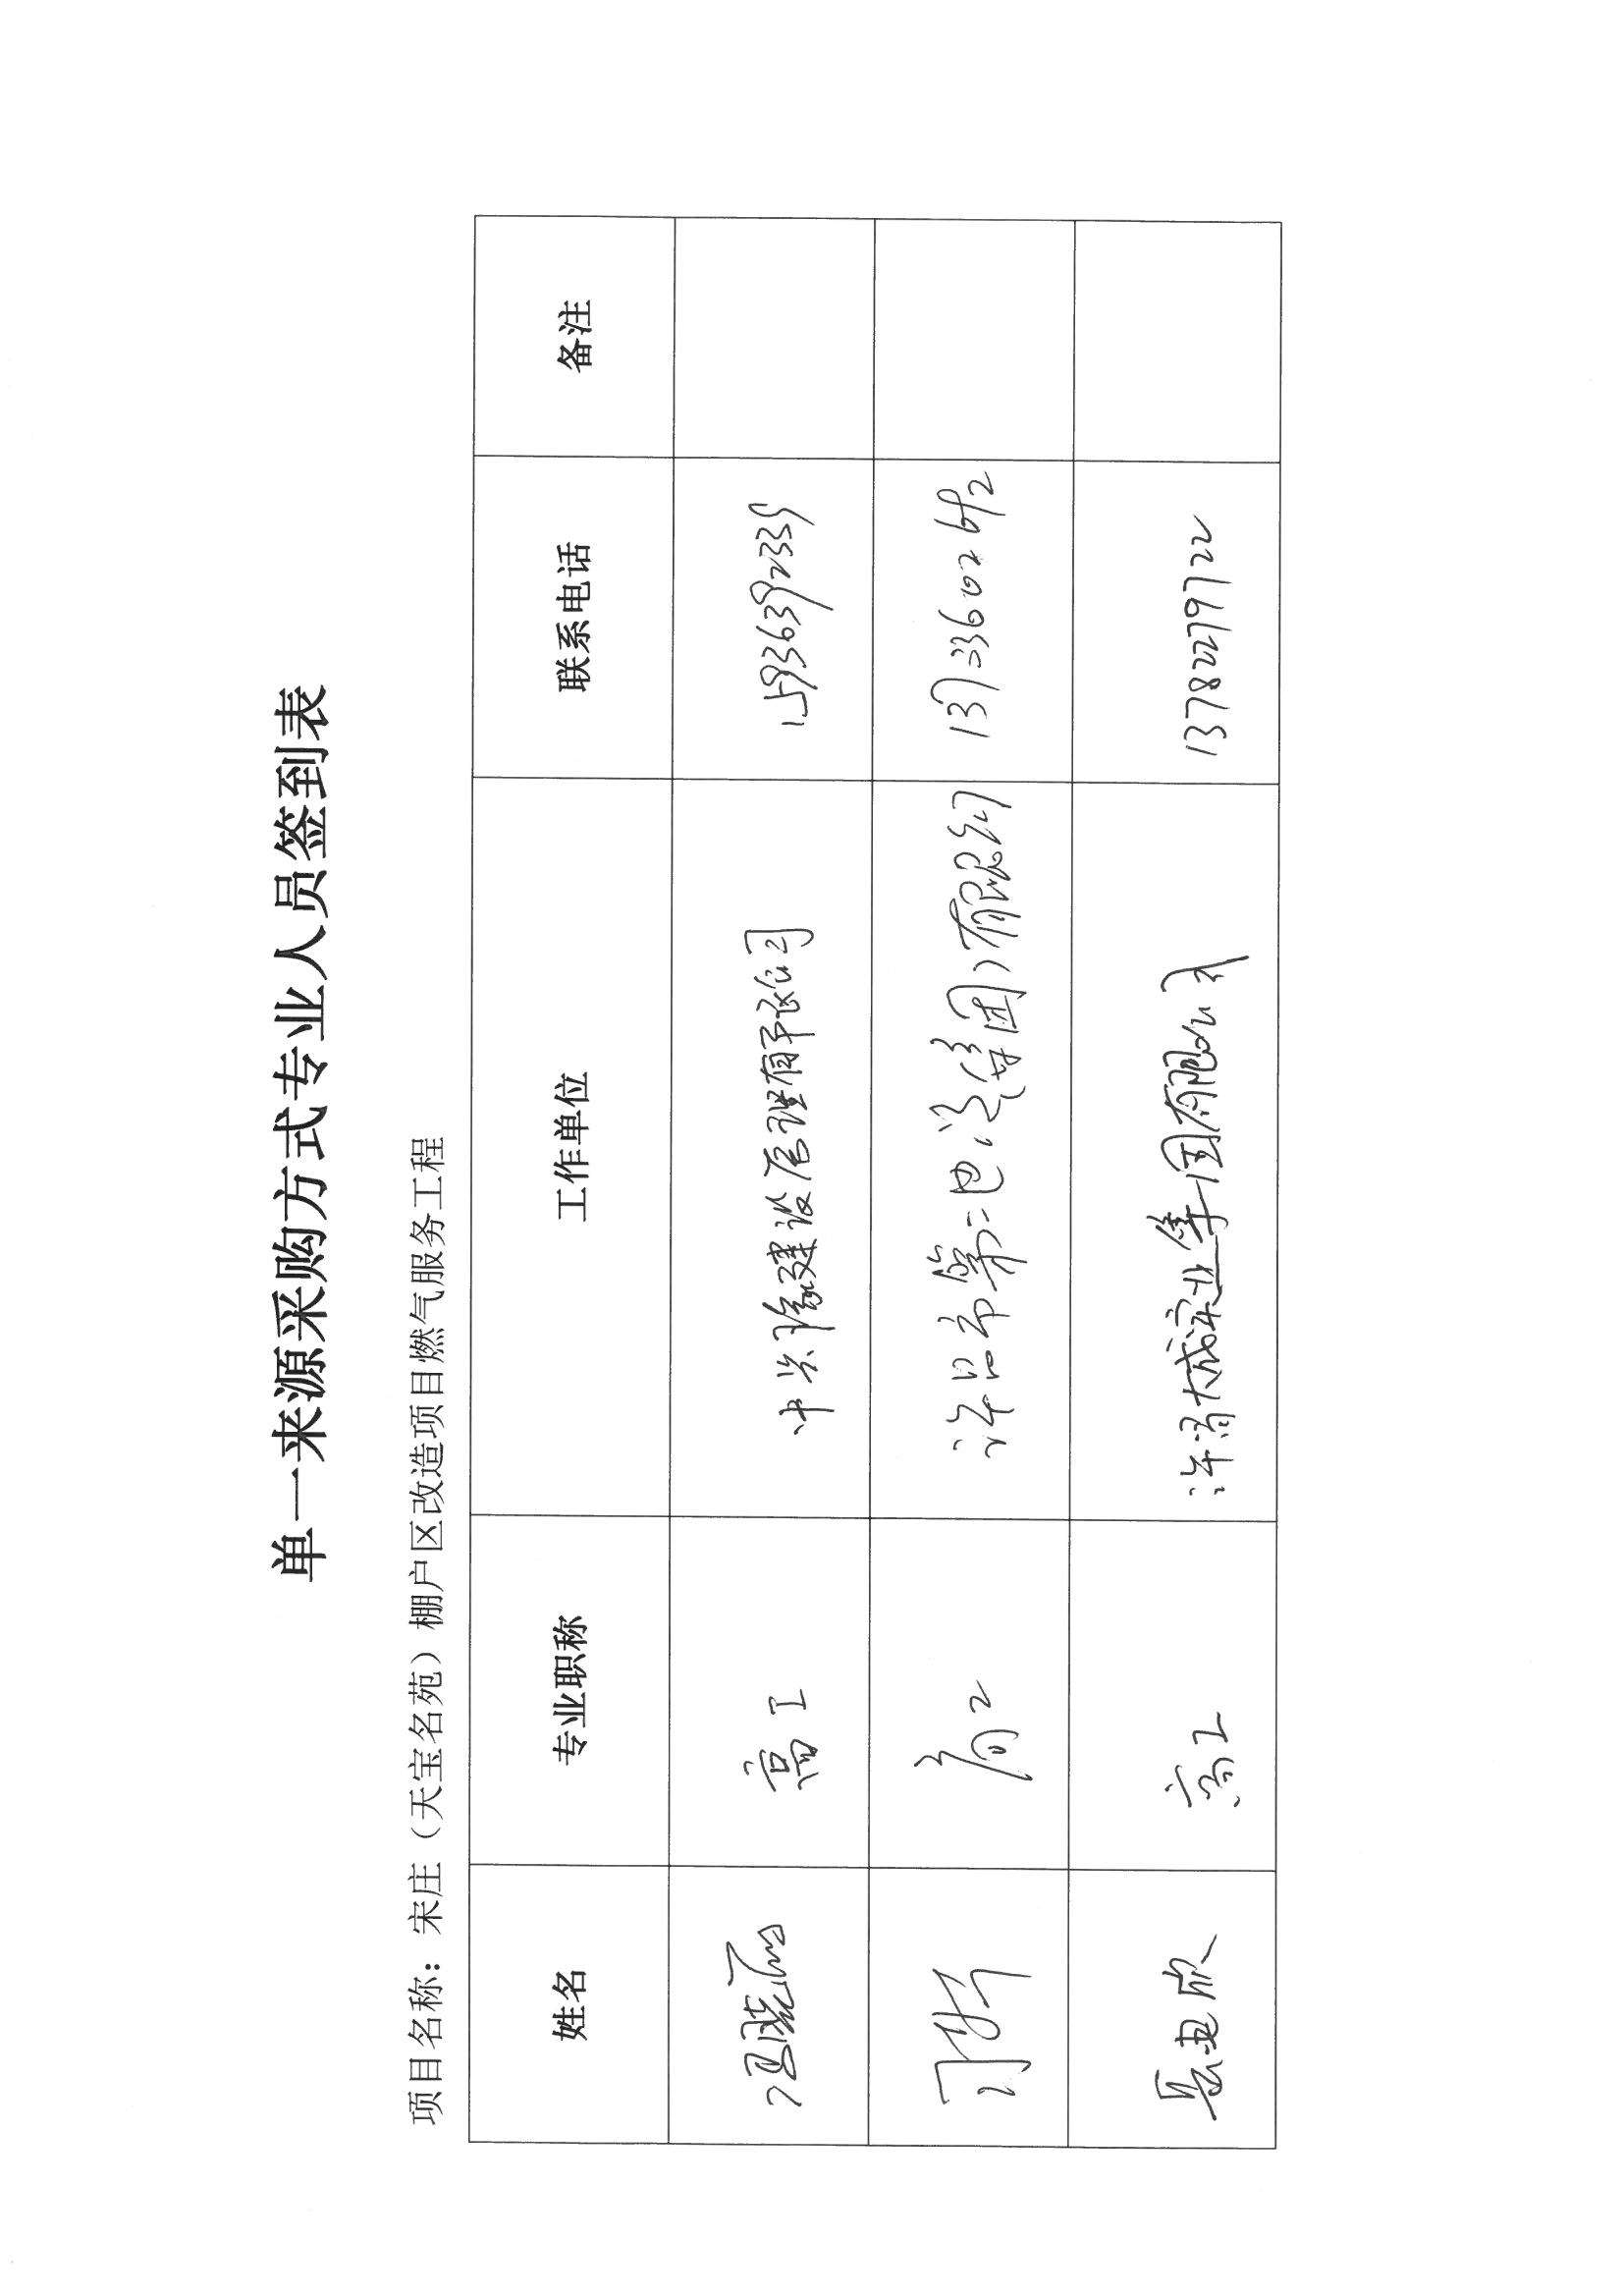 单一来源采购方式专业人员签到表
项目名称：宋庄（天宝名苑）棚户区改造项目燃气服务工程
姓名 专业职称 工作单位 联系电话 备注
冯晓丽 高工 中兴豫建设管理有限公司 15936392339
高工 许昌市第二(集团)有限公司 13733602692
高工 许昌大成实业集团有限公司 13782279722